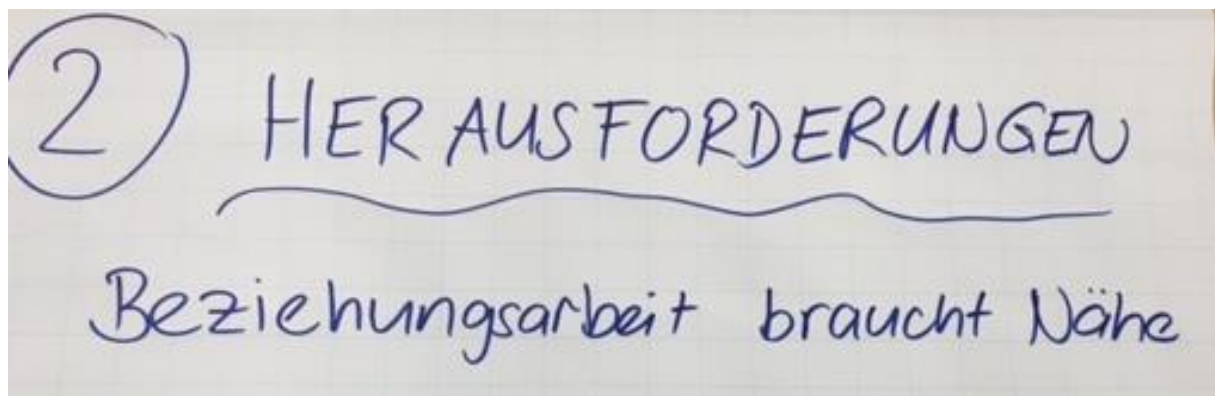 2 HERAUSFORDERUNGEN
Beziehungsarbeit braucht Nähe